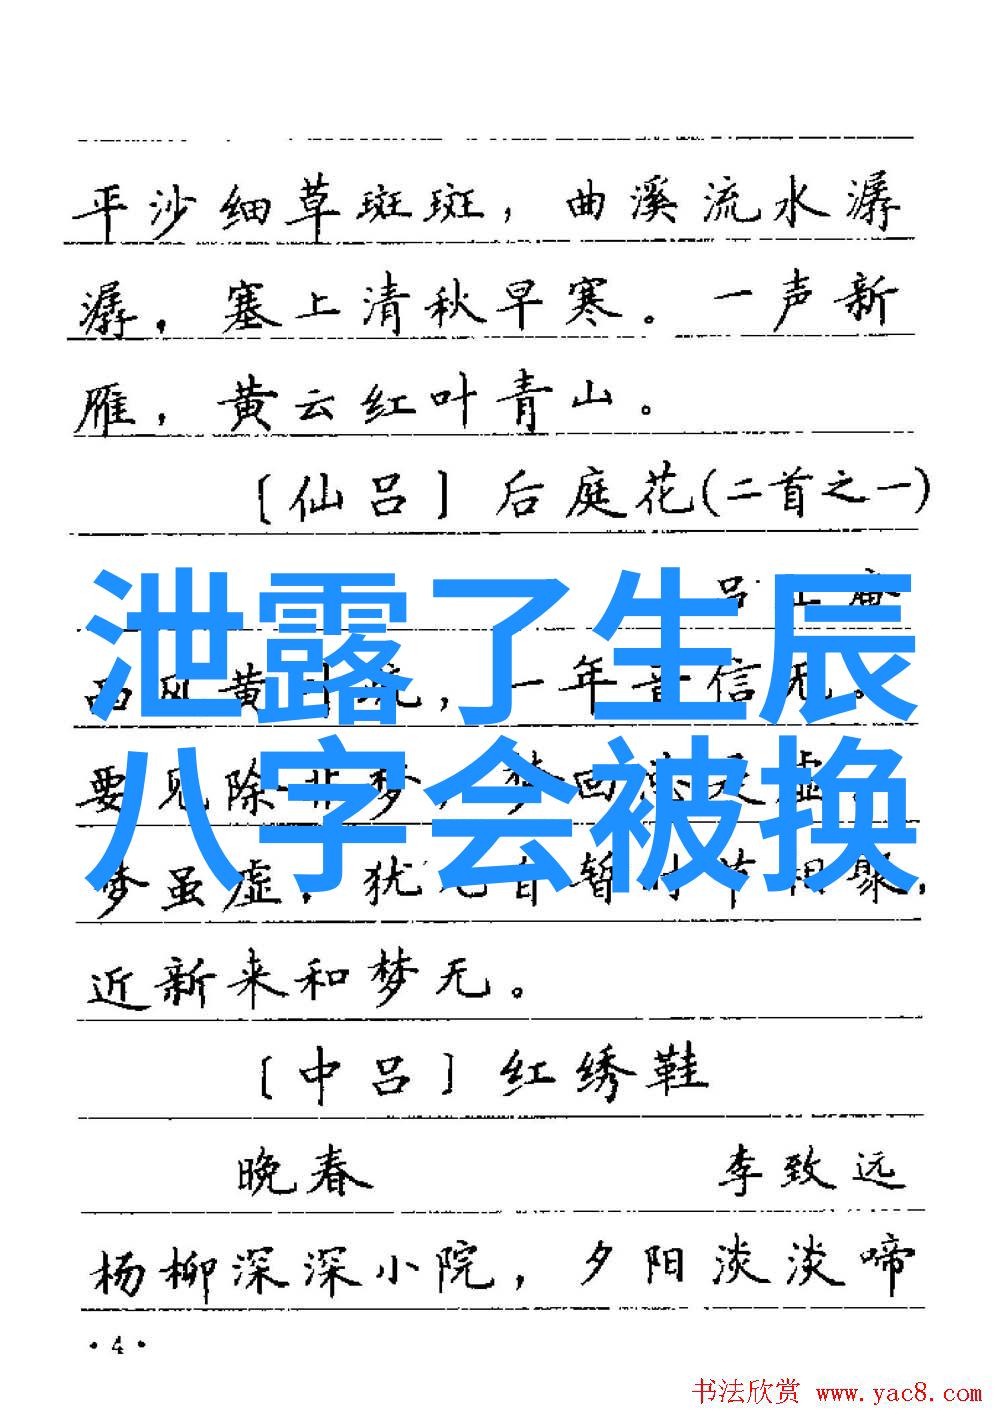 平沙细草斑斑，曲溪流水潺
潺，塞上清秋早寒。一声新
雁，黄云红叶青山。
［仙吕］后庭花(二首之一)
泄露了生辰
吕
一年音信无。
八字会被换
要见除非梦，梦回总是虚。
梦虽虚，犹暂时节相聚，
近新来和梦无。
［中吕］红绣鞋
晚春 李致远
杨柳深深小院，夕阳淡淡啼
·4·
书法欣赏 www.yac8.com